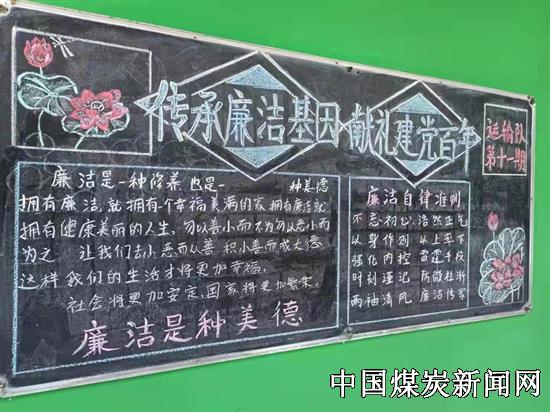 传承廉洁基因 献礼建党百年
运输队
第十一期
廉洁是一种修养 也是一种美德
拥有廉洁,就拥有个幸福美满的家,拥有廉洁就
拥有健康美丽的人生,勿以善小而不为勿以恶小而
为之 让我们去小恶而从善 积小善而成大德
这样我们的生活才将更加幸福,
社会将更加安定,国家将更加繁荣。
廉洁是种美德
廉洁自律准则
不忘初心 浩然正气
以身作则 从上率下
强化内控 雷霆手段
时刻谨记 防微杜渐
两袖清风 廉洁传家
中国煤炭新闻网